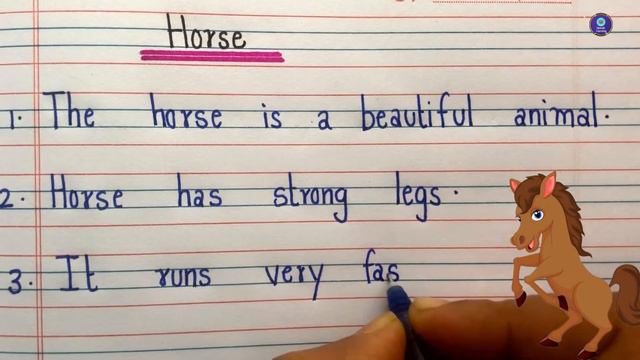 Horse
1. The horse is a beautiful animal.
2. Horse has strong legs.
3. It runs very fas